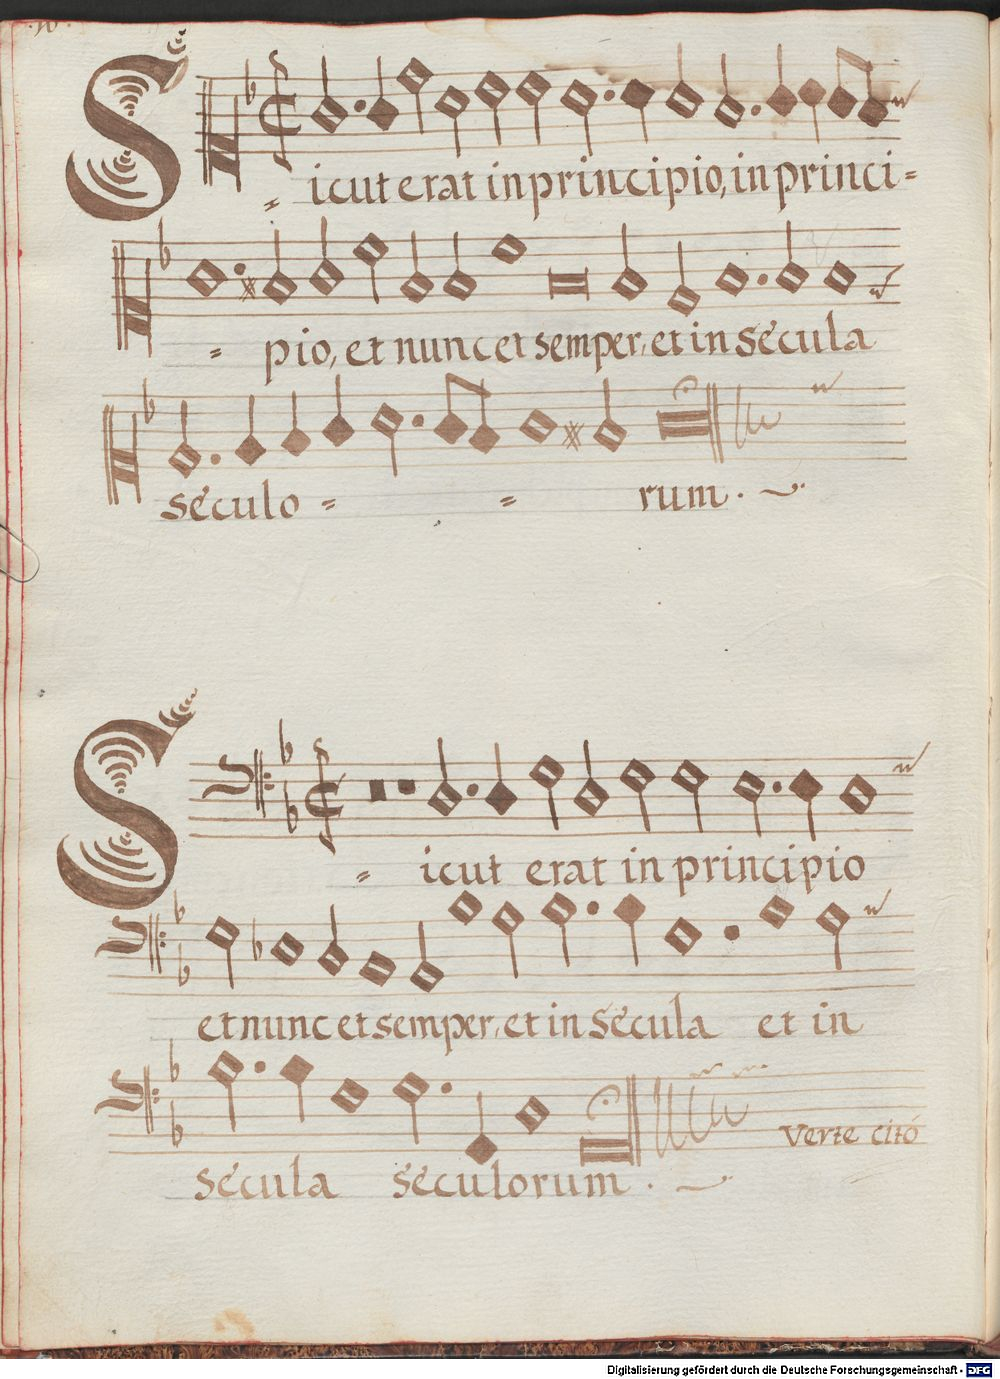 Sicut erat in principio, in princi=
= pio, et nunc et semper, et in sécula
século = = rum.
Sicut erat in principio
et nunc et semper, et in sécula et in
sécula séculorum.
Verte citó
Digitalisierung gefördert durch die Deutsche Forschungsgemeinschaft - DFG